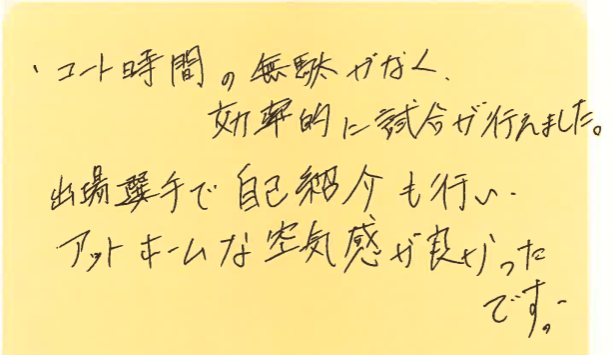 ・コート時間の無駄がなく、
効率的に試合が行えました。
出場選手で自己紹介も行い、
アットホームな空気感が良かった
です。